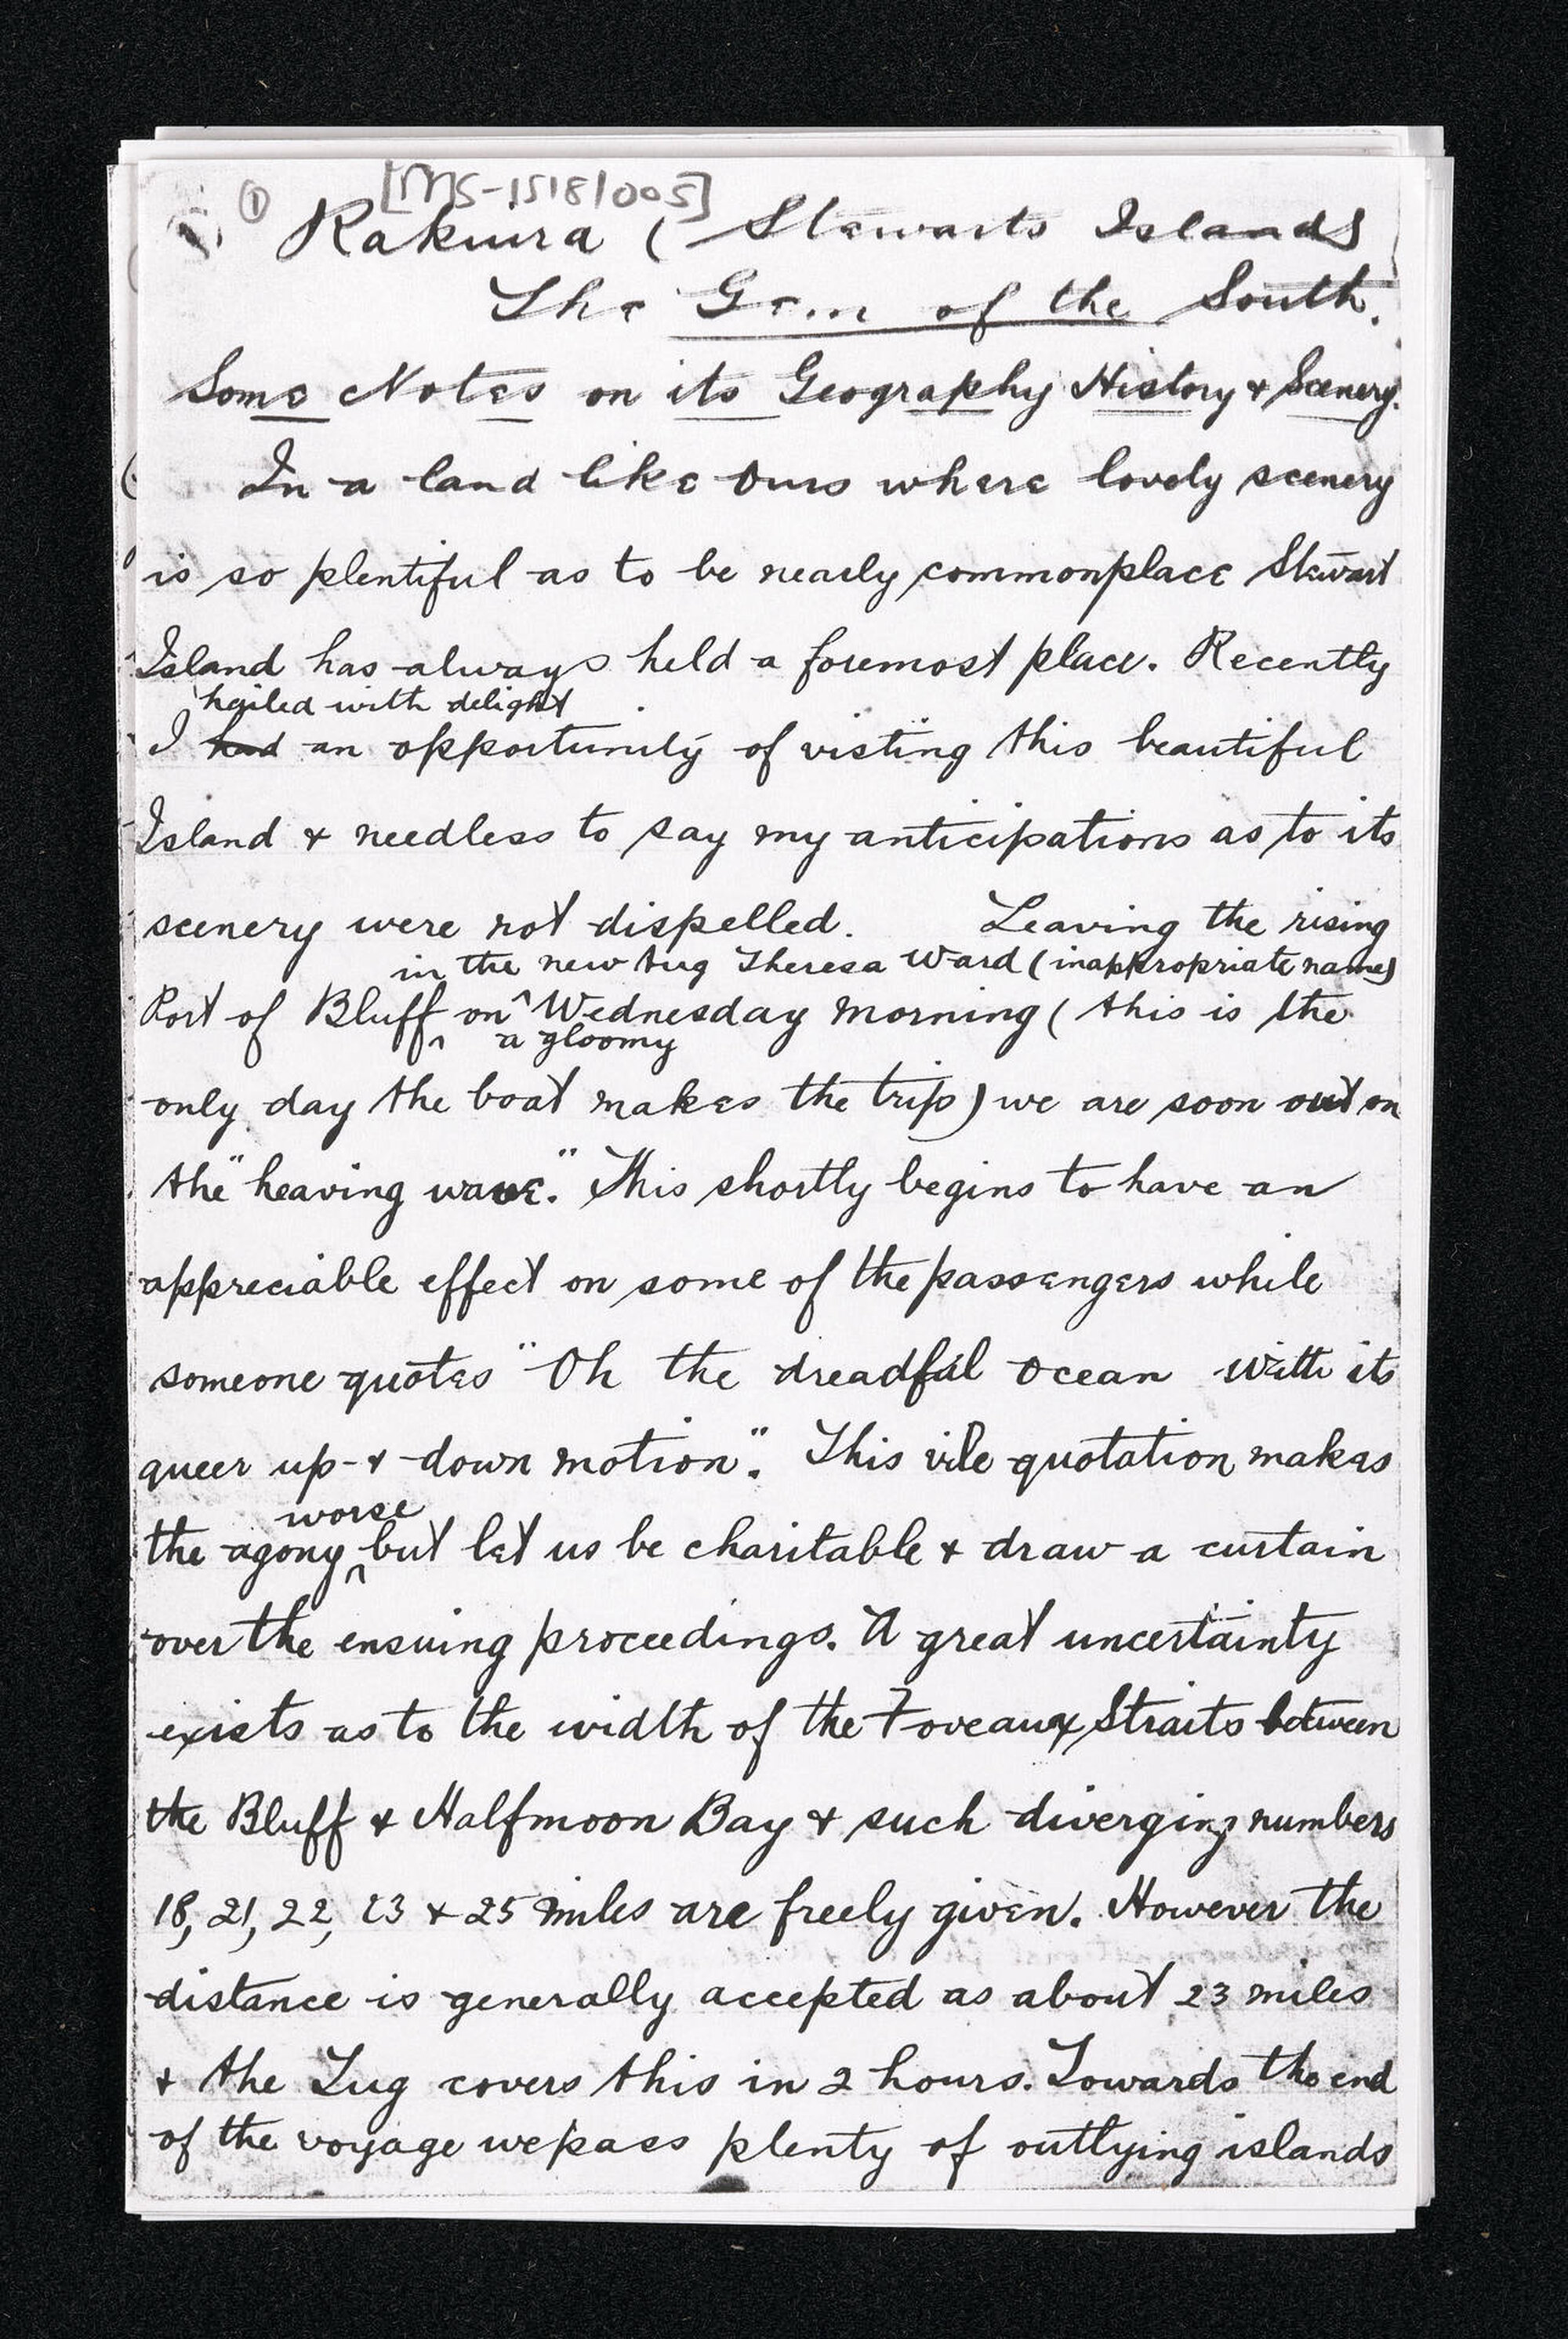 ① [MS-1518/005]
Rakiura (Stewarts Island)
The Gem of the South.
Some Notes on its Geography History & Scenery.
In a land like ours where lovely scenery
is so plentiful as to be nearly commonplace Stewart
Island has always held a foremost place. Recently
hailed with delight
I had an opportunity of visting this beautiful
Island & needless to say my anticipations as to its
scenery were not dispelled. Leaving the rising
in the new tug Theresa Ward (inappropriate name)
Port of Bluff on Wednesday morning (this is the
a gloomy
only day the boat makes the trip) we are soon out on
the "heaving wave." This shortly begins to have an
appreciable effect on some of the passengers while
someone quotes "Oh the dreadful ocean with its
queer up & down motion". This vile quotation makes
worse
the agony but let us be charitable & draw a curtain
over the ensuing proceedings. A great uncertainty
exists as to the width of the Foveaux Straits between
the Bluff & Halfmoon Bay & such diverging numbers
18, 21, 22, 23 & 25 miles are freely given. However the
distance is generally accepted as about 23 miles
& the Tug covers this in 2 hours. Towards the end
of the voyage we pass plenty of outlying islands